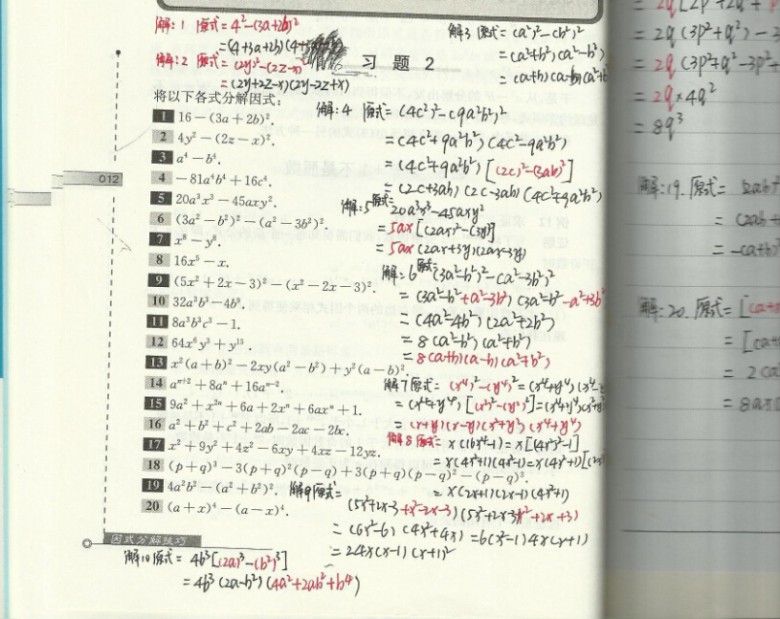 解:1 原式=4²-(3a+2b)²
=(4+3a+2b)(4
解:2 原式=(2y)²-(2z-x)²
=(2y+2z-x)(2y-2z+x)
解3 原式=(a²)²-(b²)²
=(a²+b²)(a²-b²)
=(a+b)(a-b)(a²+b²
习题2
将以下各式分解因式:
1 16-(3a+2b)².
2 4y²-(2z-x)².
3 a⁴-b⁴.
4 -81a⁴b⁴+16c⁴.
5 20a³x³-45axy².
6 (3a²-b²)²-(a²-3b²)².
7 x⁸-y⁸.
8 16x⁵-x.
9 (5x²+2x-3)²-(x²-2x-3)².
10 32a³b³-4b⁹.
11 8a³b³c³-1.
12 64x⁶y³+y¹⁵.
13 x²(a+b)²-2xy(a²-b²)+y²(a-b)².
14 aⁿ⁺²+8aⁿ+16aⁿ⁻².
15 9a²+x²ⁿ+6a+2xⁿ+6axⁿ+1.
16 a²+b²+c²+2ab-2ac-2bc.
17 x²+9y²+4z²-6xy+4xz-12yz.
18 (p+q)³-3(p+q)²(p-q)+3(p+q)(p-q)²-(p-q)³.
19 4a²b²-(a²+b²)².
20 (a+x)⁴-(a-x)⁴.
012
因式分解技巧
解:4 原式=(4c²)²-(9a²b²)²
=(4c²+9a²b²)(4c²-9a²b²)
=(4c²+9a²b²)[(2c)²-(3ab)²]
=(2c+3ab)(2c-3ab)(4c²+9a²b²)
解:5 原式=20a³x³-45axy²
=5ax[(2ax)²-(3y)²]
=5ax(2ax+3y)(2ax-3y)
解:6 原式=(3a²-b²)²-(a²-3b²)²
=(3a²-b²+a²-3b²)(3a²-b²-a²+3b²
=(4a²-4b²)(2a²+2b²)
=8(a²-b²)(a²+b²)
=8(a+b)(a-b)(a²+b²)
解7 原式=(x⁴)²-(y⁴)²=(x⁴+y⁴)(x⁴-
=(x⁴+y⁴)[(x²)²-(y²)²]=(x⁴+y⁴)(x²+y²
=(x+y)(x-y)(x²+y²)(x⁴+y⁴)
解8 原式=x(16x⁴-1)=x[(4x²)²-1]
=x(4x²+1)(4x²-1)=x(4x²+1)[(2x)²
=x(2x+1)(2x-1)(4x²+1)
解9 原式=
(5x²+2x-3+x²-2x-3)(5x²+2x-3-x²+2x+3)
=(6x²-6)(4x²+4x)=6(x²-1)4x(x+1)
=24x(x-1)(x+1)²
解10 原式=4b³[(2a)³-(b²)³]
=4b³(2a-b²)(4a²+2ab²+b⁴)
=2q(3p²+q²)-3
=2q(3p²+q²-3p²+
=2q×4q²
=8q³
解:19. 原式=
解:20. 原式=